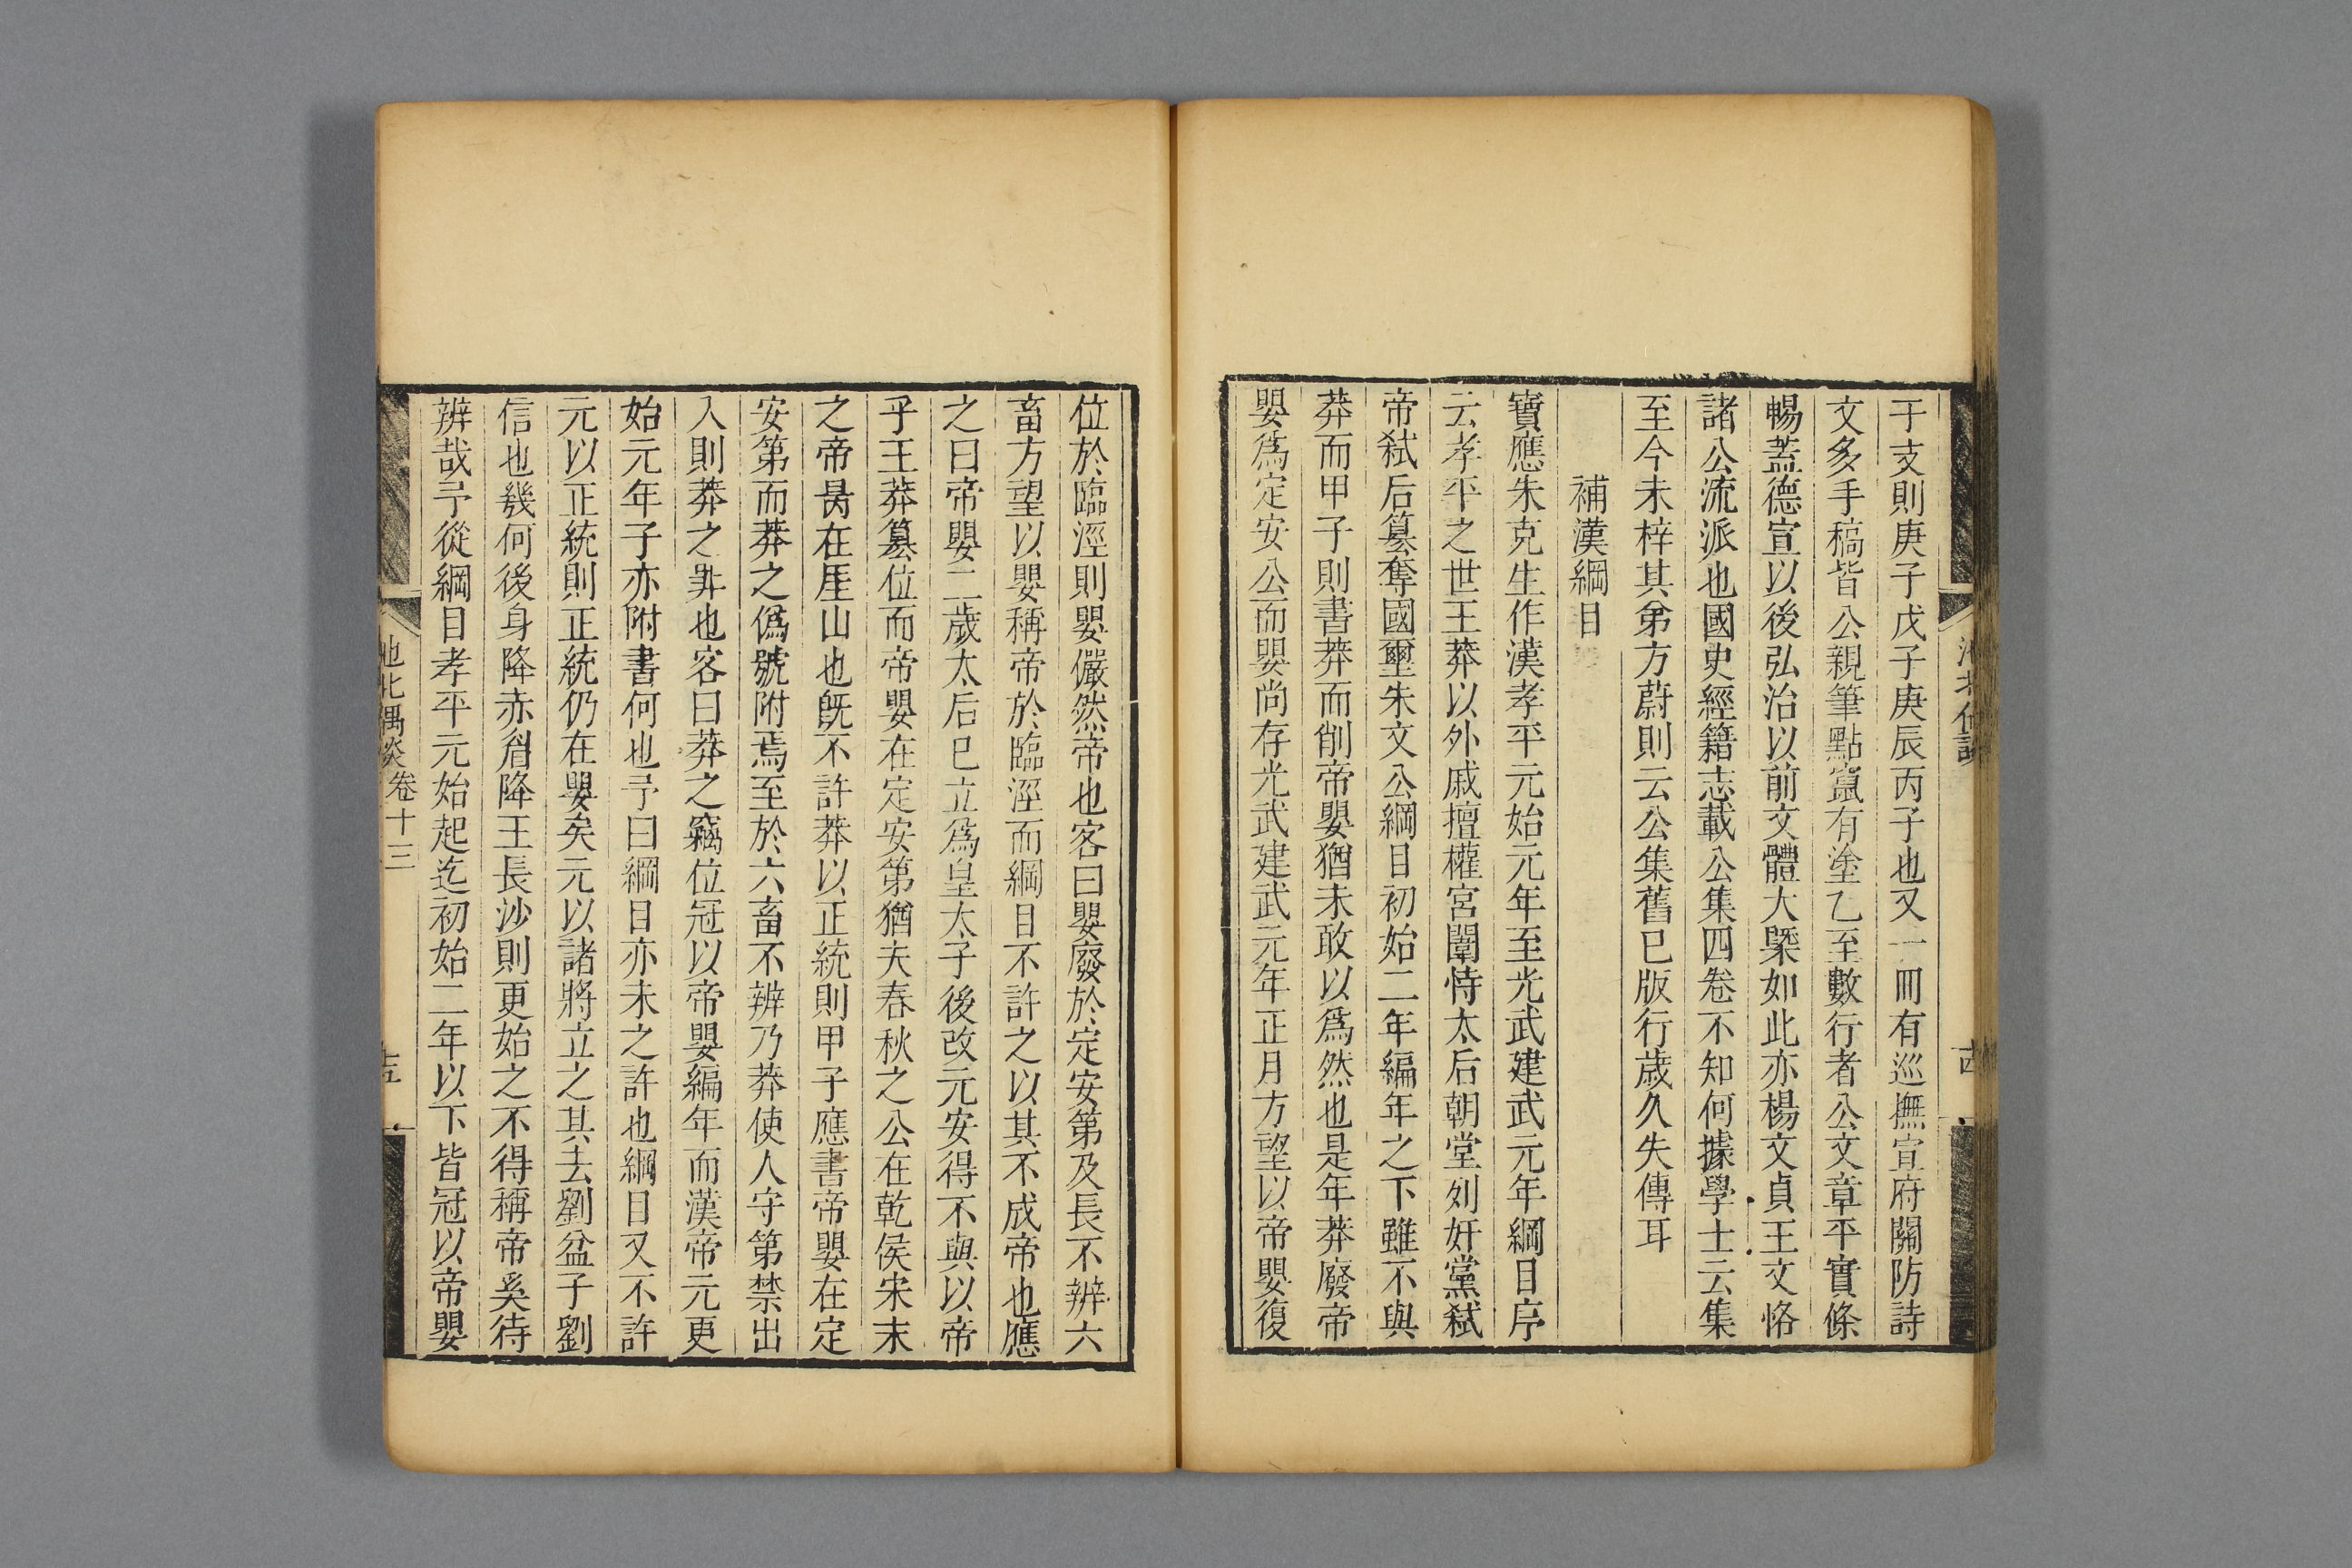 干支則庚子戊子庚辰丙子也又一冊有巡撫宣府關防詩
文多手稿皆公親筆點竄有塗乙至數行者公文章平實條
暢蓋德宣以後弘治以前文體大槩如此亦楊文貞王文恪
諸公流派也國史經籍志載公集四卷不知何據學士云集
至今未梓其弟方蔚則云公集舊已版行歲久失傳耳
補漢綱目
寶應朱克生作漢孝平元始元年至光武建武元年綱目序
云孝平之世王莽以外戚擅權宮闈恃太后朝堂列奸黨弑
帝弑后簒奪國璽朱文公綱目初始二年編年之下雖不與
莽而甲子則書莽而削帝嬰猶未敢以爲然也是年莽廢帝
嬰爲定安公而嬰尚存光武建武元年正月方望以帝嬰復
位於臨涇則嬰儼然帝也客曰嬰廢於定安第及長不辨六
畜方望以嬰稱帝於臨涇而綱目不許之以其不成帝也應
之曰帝嬰二歲太后已立爲皇太子後改元安得不與以帝
乎王莽簒位而帝嬰在定安第猶夫春秋之公在乾侯宋末
之帝昺在厓山也既不許莽以正統則甲子應書帝嬰在定
安第而莽之僞號附焉至於六畜不辨乃莽使人守第禁出
入則莽之罪也客曰莽之竊位冠以帝嬰編年而漢帝元更
始元年子亦附書何也予曰綱目亦未之許也綱目又不許
元以正統則正統仍在嬰矣元以諸將立之其去劉盆子劉
信也幾何後身降赤眉降王長沙則更始之不得稱帝奚待
辨哉予從綱目孝平元始起迄初始二年以下皆冠以帝嬰
池北偶談 卷十三 十五